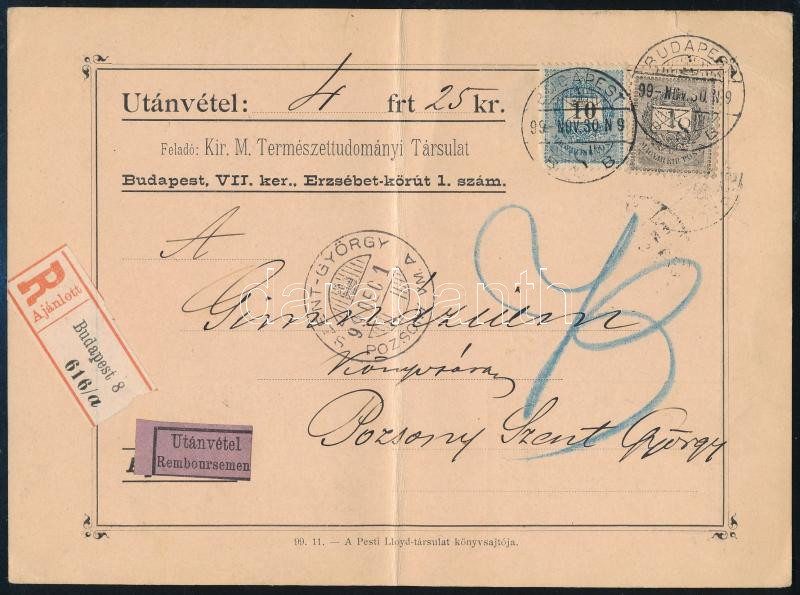 Utánvétel: 4 frt 25 kr.
Feladó: Kir. M. Természettudományi Társulat
Budapest, VII. ker., Erzsébet-körút 1. szám.
10
BUDAPEST
99 NOV. 30 N 9
B
BUDAPEST
99 NOV. 30 N 9
B
A
SZENT-GYÖRGY
DEC 1
POZSO
Gimnázium
Könyvtára
Pozsony Szent György
R
Ajánlott
Budapest 8
616/a
Utánvétel
Remboursemen
darabanth
99. 11. — A Pesti Lloyd-társulat könyvsajtója.